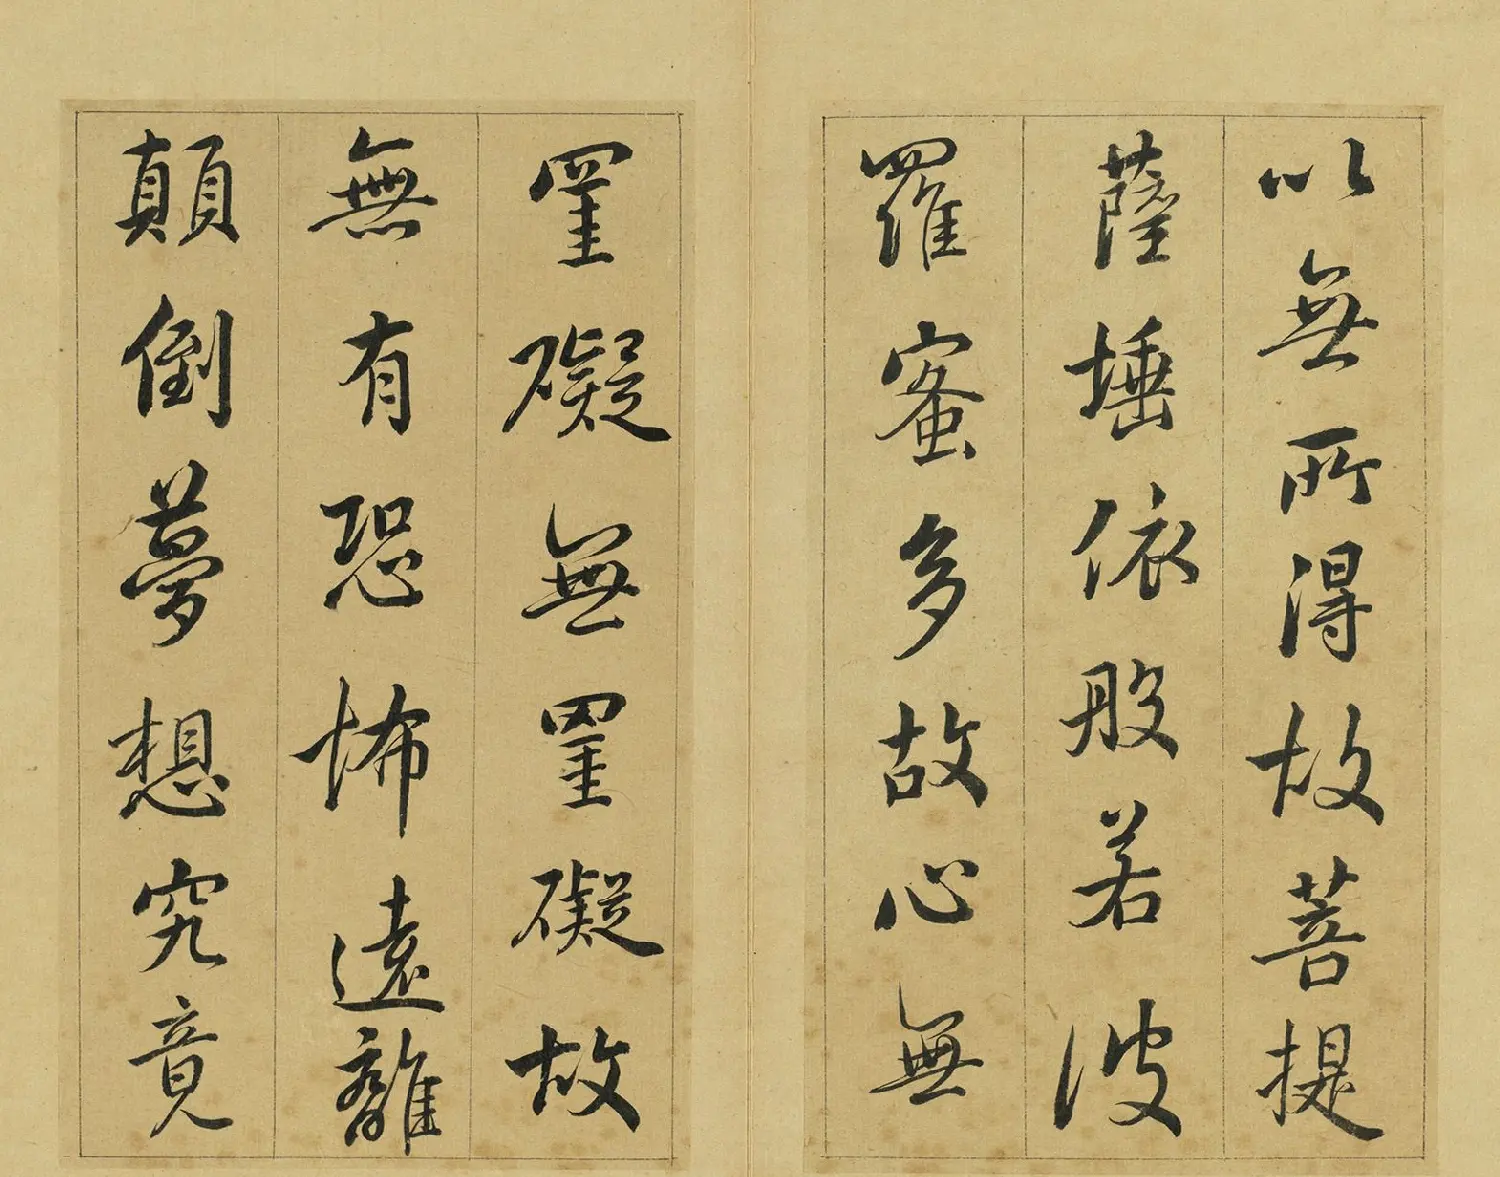 以無所得故菩提
薩埵依般若波
羅蜜多故心無
罣礙無罣礙故
無有恐怖遠離
顛倒夢想究竟